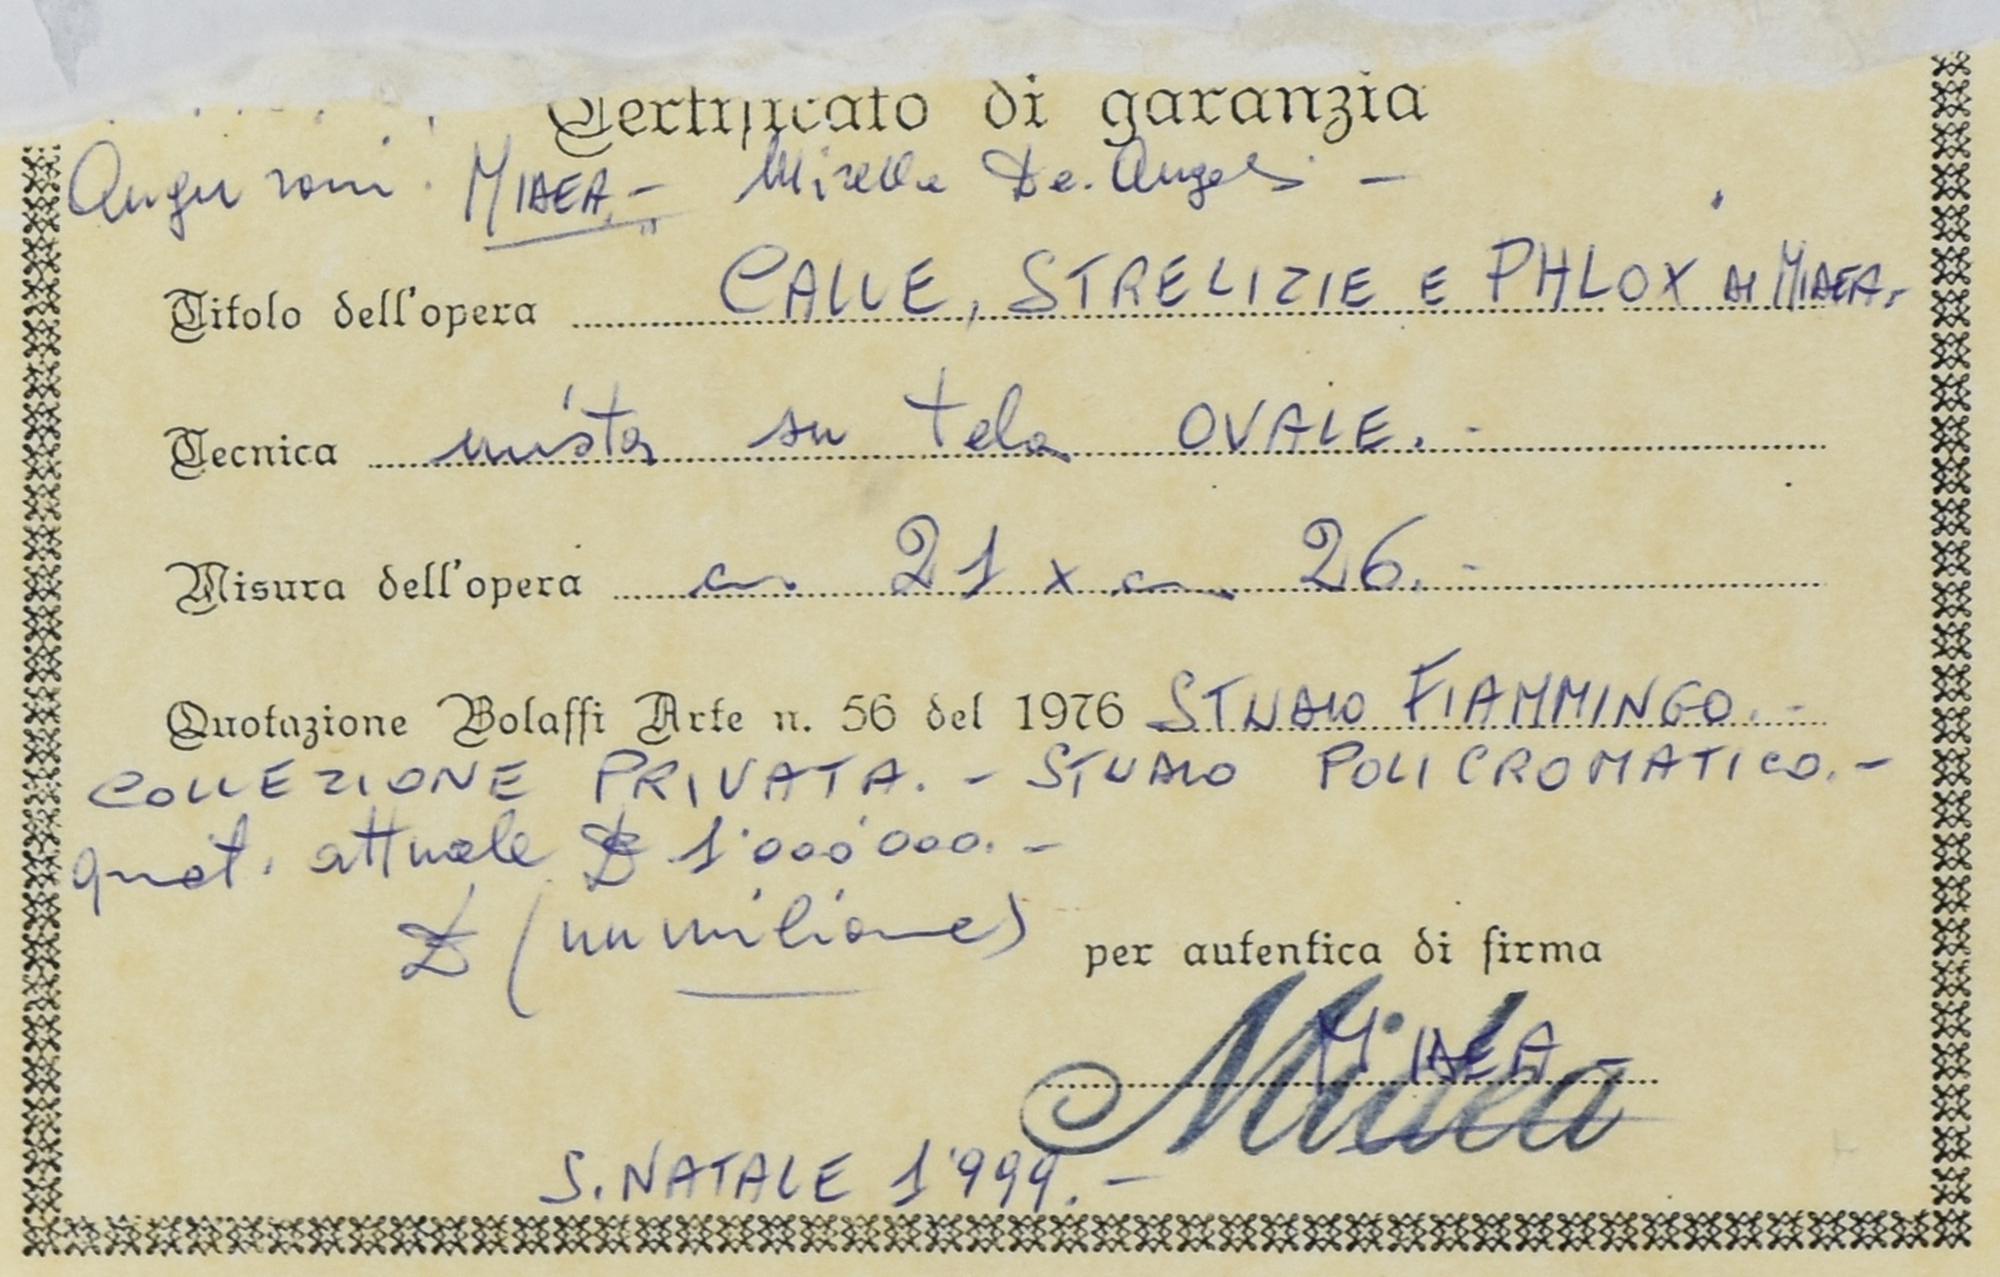 Certificato di garanzia
Auguroni. MIDEA.- Mirella De. Angelis -
Titolo dell'opera CALLE, STRELIZIE E PHLOX DI MIDEA.
Tecnica mista su tela OVALE.-
Misura dell'opera cm. 21 x cm. 26.-
Quotazione Bolaffi Arte n. 56 del 1976 STUDIO FIAMMINGO.-
COLLEZIONE PRIVATA.- STUDIO POLICROMATICO.-
quot. attuale £ 1'000'000.-
£ (un milione)
per autentica di firma
MIDEA-
Midea
S. NATALE 1'999.-